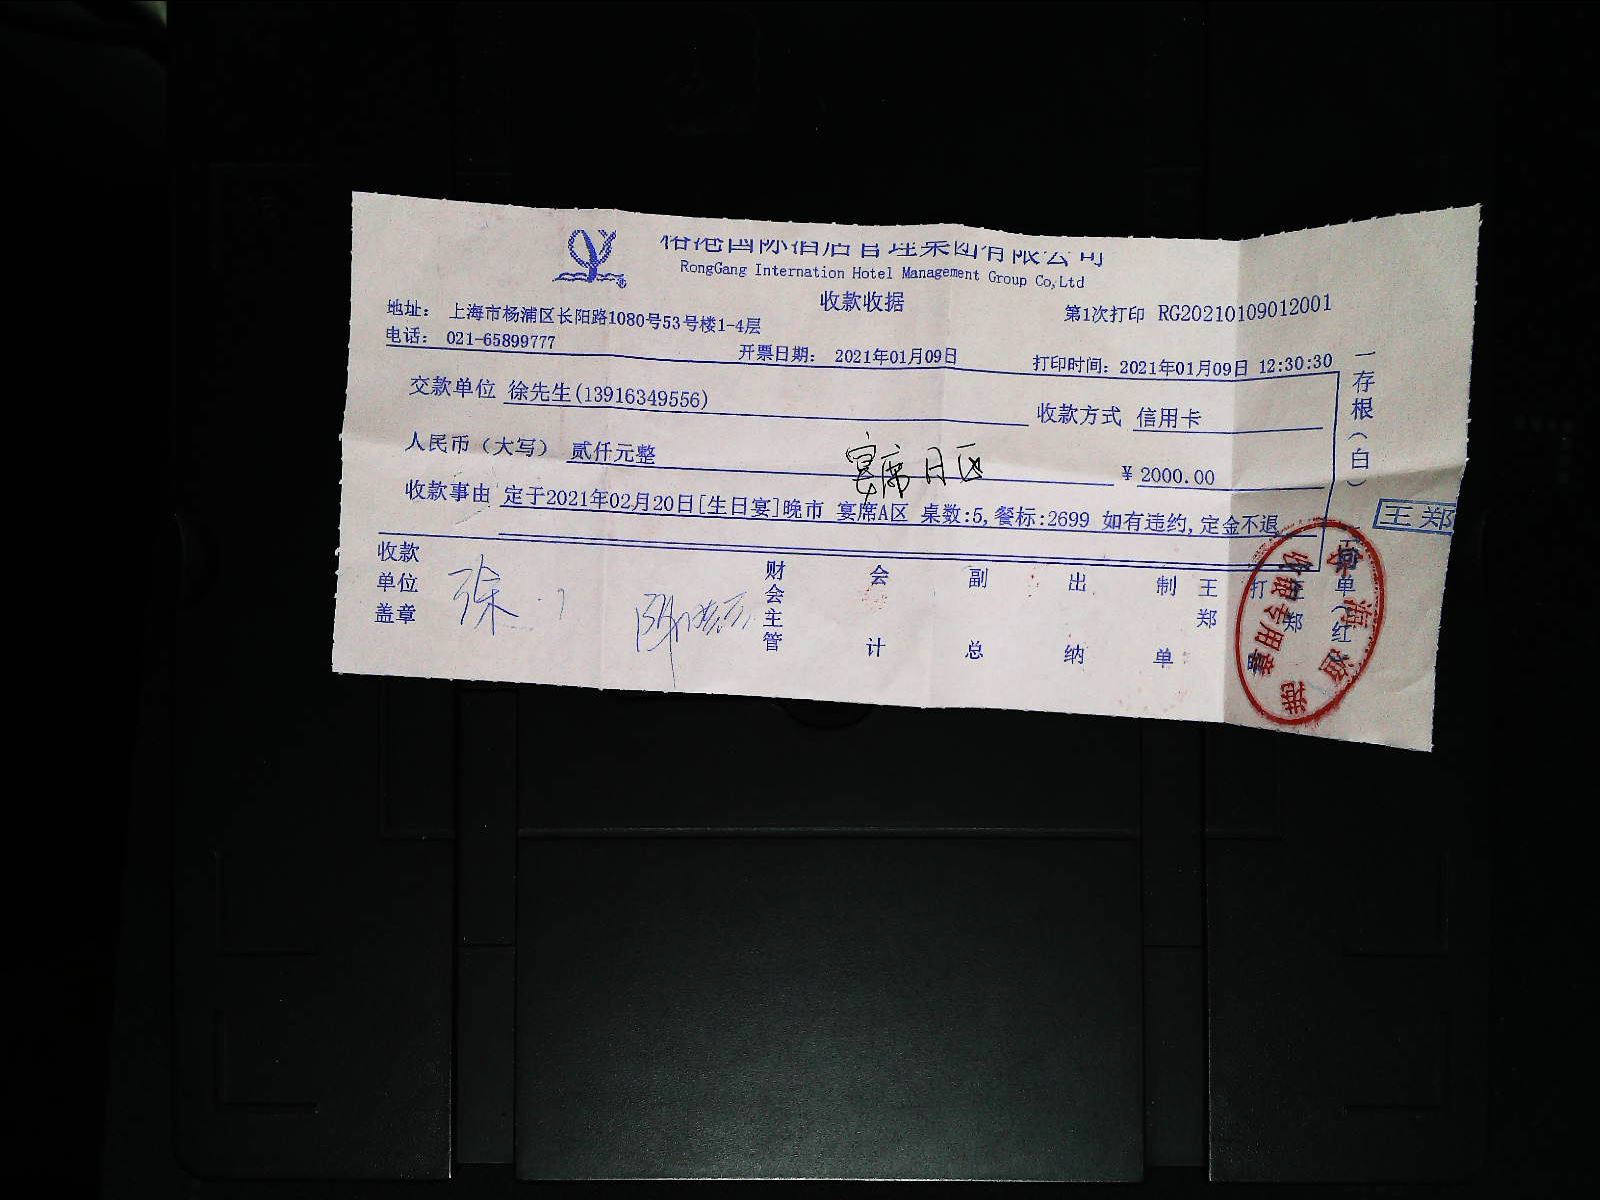 国际酒店管理集团有限公司
RongGang Internation Hotel Management Group Co,Ltd
收款收据
第1次打印 RG20210109012001
地址： 上海市杨浦区长阳路1080号53号楼1-4层
电话： 021-65899777
开票日期： 2021年01月09日
打印时间：2021年01月09日 12:30:30
交款单位 徐先生(13916349556)
收款方式 信用卡
人民币（大写） 贰仟元整
¥ 2000.00
宴席
收款事由 定于2021年02月20日[生日宴]晚市 宴席A区 桌数:5,餐标:2699 如有违约,定金不退
收款单位盖章
财会主管
会计
副总
出纳
制单
王郑
一存根(白)
王郑
收银专用章